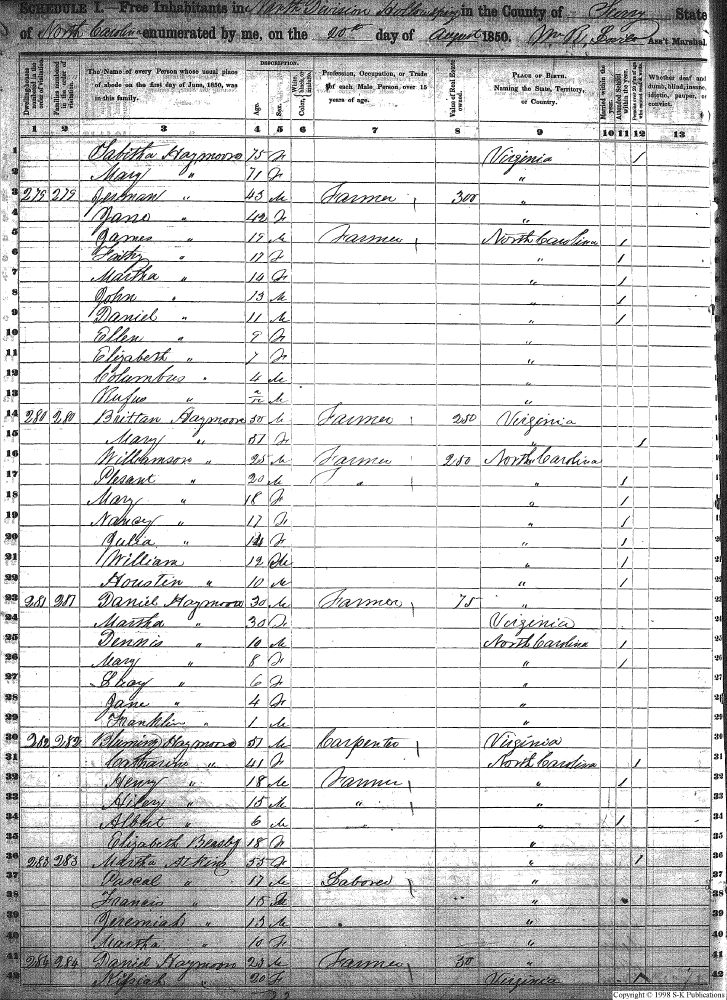 SCHEDULE I.—Free Inhabitants in North Division Hollow Spring in the County of Surry State
of North Carolina enumerated by me, on the 20th day of August 1850. Ass't Marshal.
Dwelling-houses numbered in the order of visitation.
Families numbered in the order of visitation.
The Name of every Person whose usual place of abode on the first day of June, 1850, was in this family.
DESCRIPTION.
Age.
Sex.
White, black, or mulatto. Color,
Profession, Occupation, or Trade of each Male Person over 15 years of age.
Value of Real Estate owned.
PLACE OF BIRTH. Naming the State, Territory, or Country.
Married within the year.
Attended School within the year.
Whether deaf and dumb, blind, insane, idiotic, pauper, or convict.
1 2 3 4 5 6 7 8 9 10 11 12 13
1 Tabitha Haymoore 75 F Virginia 1
2 Mary " 71 F "
3 279 279 Jerman " 43 M Farmer 300 "
4 Jane " 42 F "
5 James " 19 M Farmer North Carolina 1
6 Faithy " 17 F " 1
7 Martha " 14 F " 1
8 John " 13 M " 1
9 Daniel " 11 M " 1
10 Ellen " 9 F "
11 Elizabeth " 7 F "
12 Columbus " 4 M "
13 Rufus " M "
14 280 280 Brittan Haymoore 50 M Farmer 250 Virginia
15 Mary " 51 F " 1
16 Williamson " 25 M Farmer 250 North Carolina
17 Plesant " 20 M " " 1
18 Mary " 18 F " 1
19 Nancy " 17 F " 1
20 Julia " 14 F " 1
21 William 12 M " 1
22 Houstin " 10 M " 1
23 281 281 Daniel Haymoore 30 M Farmer 75 "
24 Martha " 30 F Virginia
25 Dennis " 10 M North Carolina 1
26 Mary " 8 F " 1
27 " 6 F "
28 Jane " 4 F "
29 Franklin " 1 M "
30 282 282 Fleming Haymoore 51 M Carpenter Virginia
31 Cartharine " 41 F North Carolina 1
32 Henry " 18 M Farmer " 1
33 Hiley " 15 M " "
34 Albert " 6 M " 1
35 Elizabeth Beasly 18 F "
36 283 283 Martha Atkins 55 F " 1
37 Pascal " 17 M Laborer "
38 Francis " 15 M "
39 Jeremiah " 13 M "
40 Martha " 10 F "
41 284 284 Daniel Haymoore 23 M Farmer 50 "
42 Kisiah " 20 F Virginia
Copyright © 1998 S-K Publications